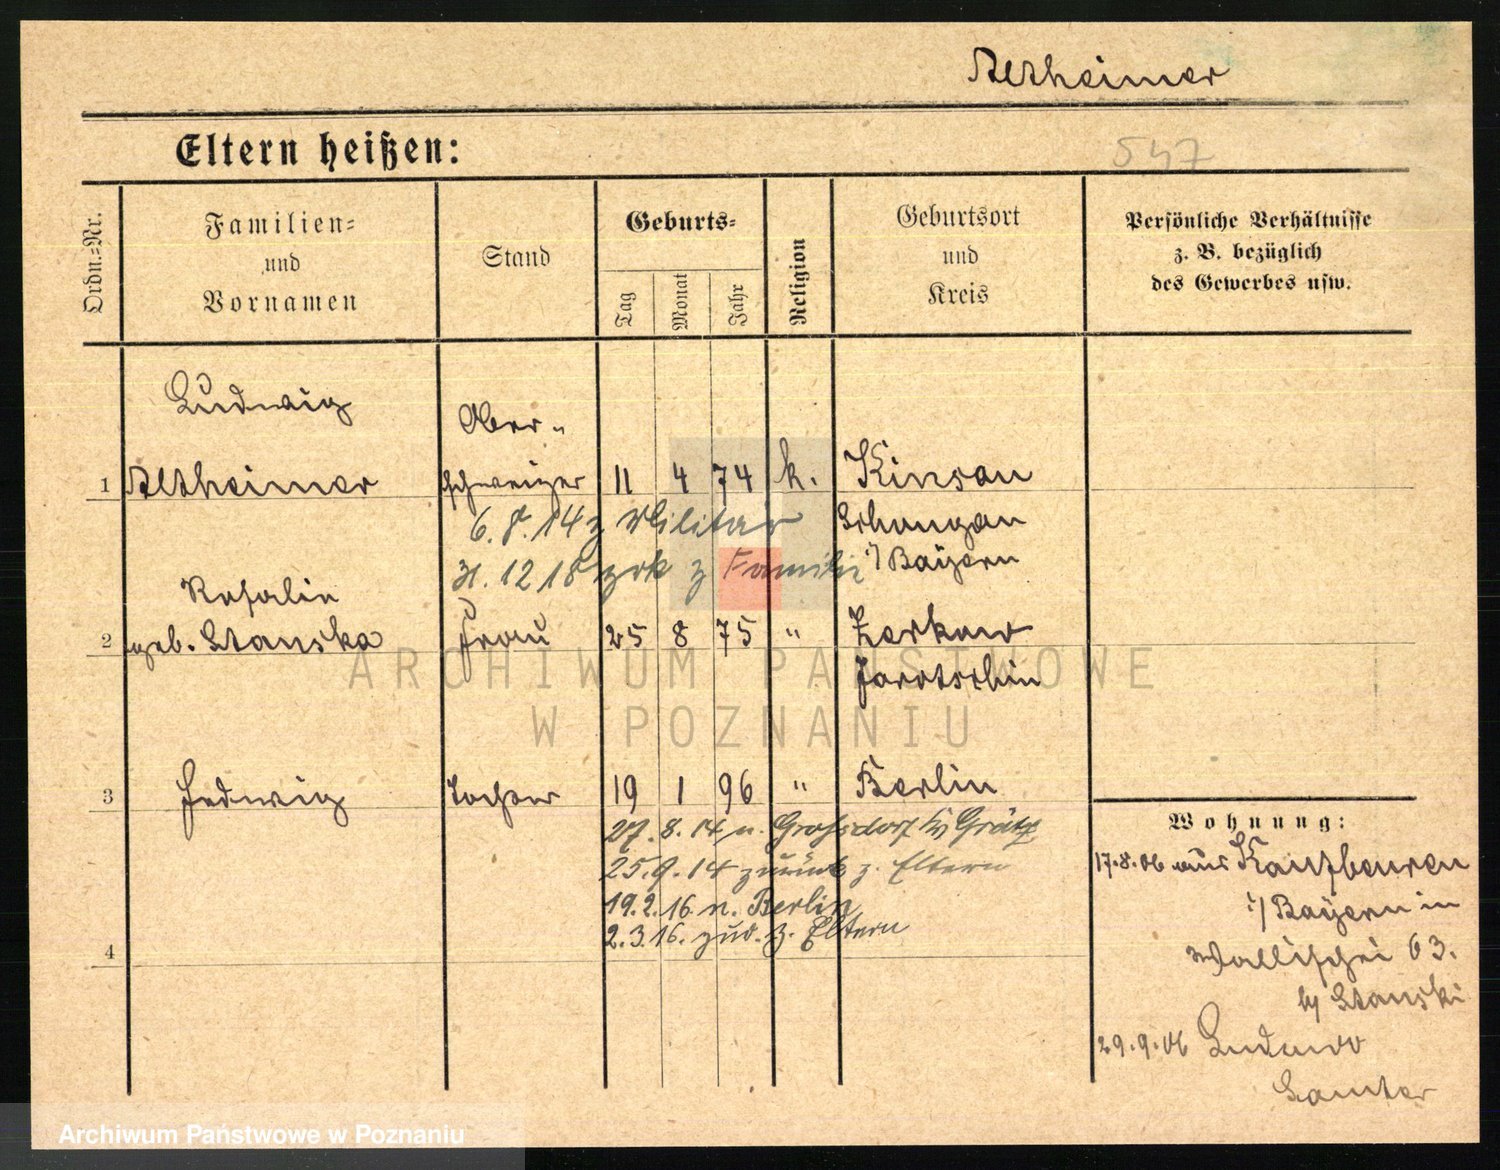 Altheimer
Eltern heißen:
547
Ordn.=Nr.
Familien=
und
Vornamen
Stand
Geburts=
Tag
Monat
Jahr
Religion
Geburtsort
und
Kreis
Persönliche Verhältnisse
z. B. bezüglich
des Gewerbes usw.
Ludwig
Ober-
1 Altheimer schweizer 11 4 74 k. Kinsau
6.8.14 z Militär Schongau
31.12 18 zrk z Familie i/Bayern
Rosalie
2 geb. Stanska Frau 25 8 75 " Zerkow
Jarotschin
3 Hedwig Tochter 19 1 96 " Berlin
27.8.14 n. Grossdorf Grätz
25.9.14 zurück z. Eltern
19.2.16 n. Berlin
2.3.16. zur. z. Eltern
4
Wohnung:
17.8.06 aus Kaufbeuren
i/Bayern in
Wallischei 63.
b/ Stanski
29.9.06
ARCHIWUM PAŃSTWOWE
W POZNANIU
Archiwum Państwowe w Poznaniu